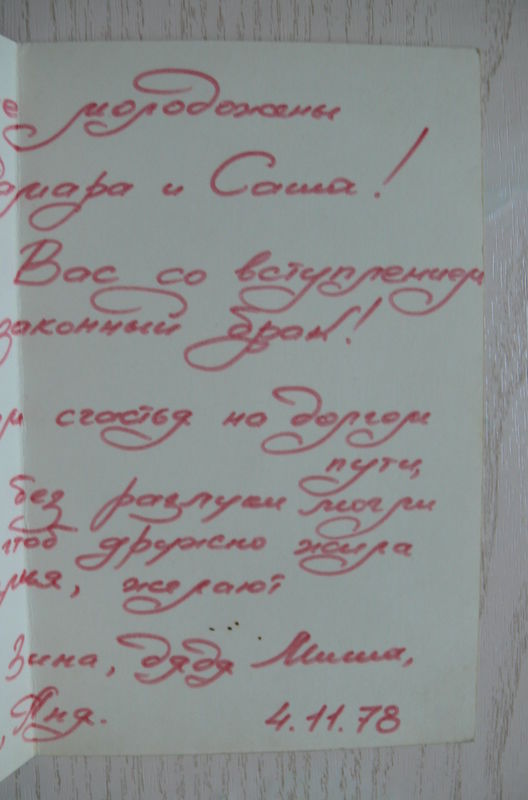 е молодожены
амара и Саша!
Вас со вступлением
законный брак!
м счастья на долгом
пути,
без разлуки могли
чтоб дружно жила
мья, желают
Зина, дядя Миша,
, Яна.
4.11.78